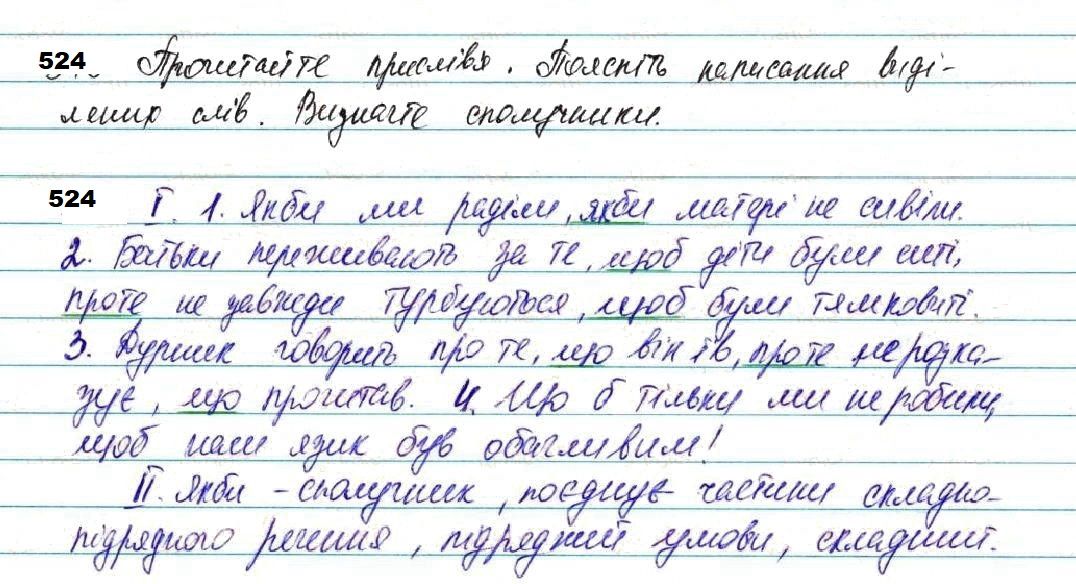 524 Прочитайте прислівя. Поясніть написання виді-
лених слів. Визначте сполучники.
524 I. 1. Якби ми раділи, якби матері не сивіли.
2. Батьки переживають за те, щоб діти були ситі,
проте не завжди турбуються, щоб були тямковиті.
3. Дурник говорить про те, що він їв, проте не розка-
зує, що прочитав. 4. Що б тільки ми не робили,
щоб наш язик був обачливим!
II. Якби - сполучник, поєднує частини складно-
підрядного речення, підрядний умови, складний.